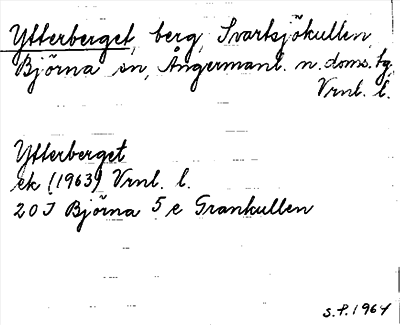 Ytterberget, berg, Svartsjökullen,
Björna sn, Ångermanl. n. doms. tg,
Vrnl. l.
Ytterberget
ek (1963) Vrnl. l.
20 J Björna 5 e Grankullen
S.P. 1964